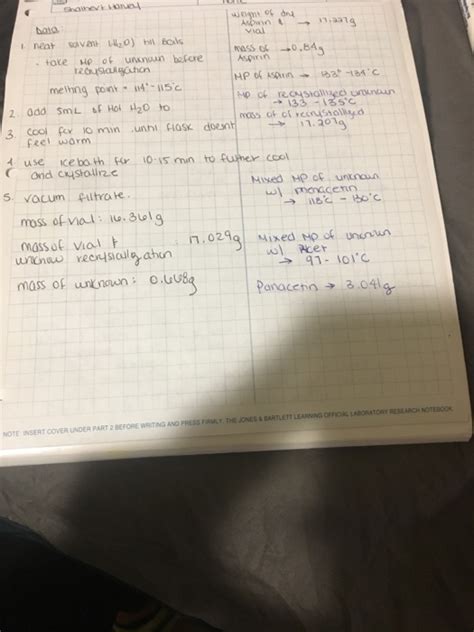 Data
1. heat solvent (H₂O) till boils
• take MP of unknown before
recrystallization
melting point = 114° - 115°C
2. add 5mL of Hot H₂O to
3. cool for 10 min until flask doesnt
feel warm
4. use ice bath for 10-15 min to further cool
and crystallize
5. vacum filtrate.
mass of vial: 16.361g
mass of vial +
: 17.029g
mass of unknown: 0.668g
weight of dry
Aspirin &
→ 17.227g
vial
mass of → 0.84g
Aspirin
MP of Aspirin → 133° - 134°C
MP of recrystallized unknown
→ 133 - 135°C
mass of of recrystallized
→ 17.207g
Mixed MP of unknown
w/
→ 118°C - 130°C
Mixed MP of unknown
w/ Acet
→ 97 - 101°C
Panacetin → 3.041g
NOTE: INSERT COVER UNDER PART 2 BEFORE WRITING AND PRESS FIRMLY. THE JONES & BARTLETT LEARNING OFFICIAL LABORATORY RESEARCH NOTEBOOK